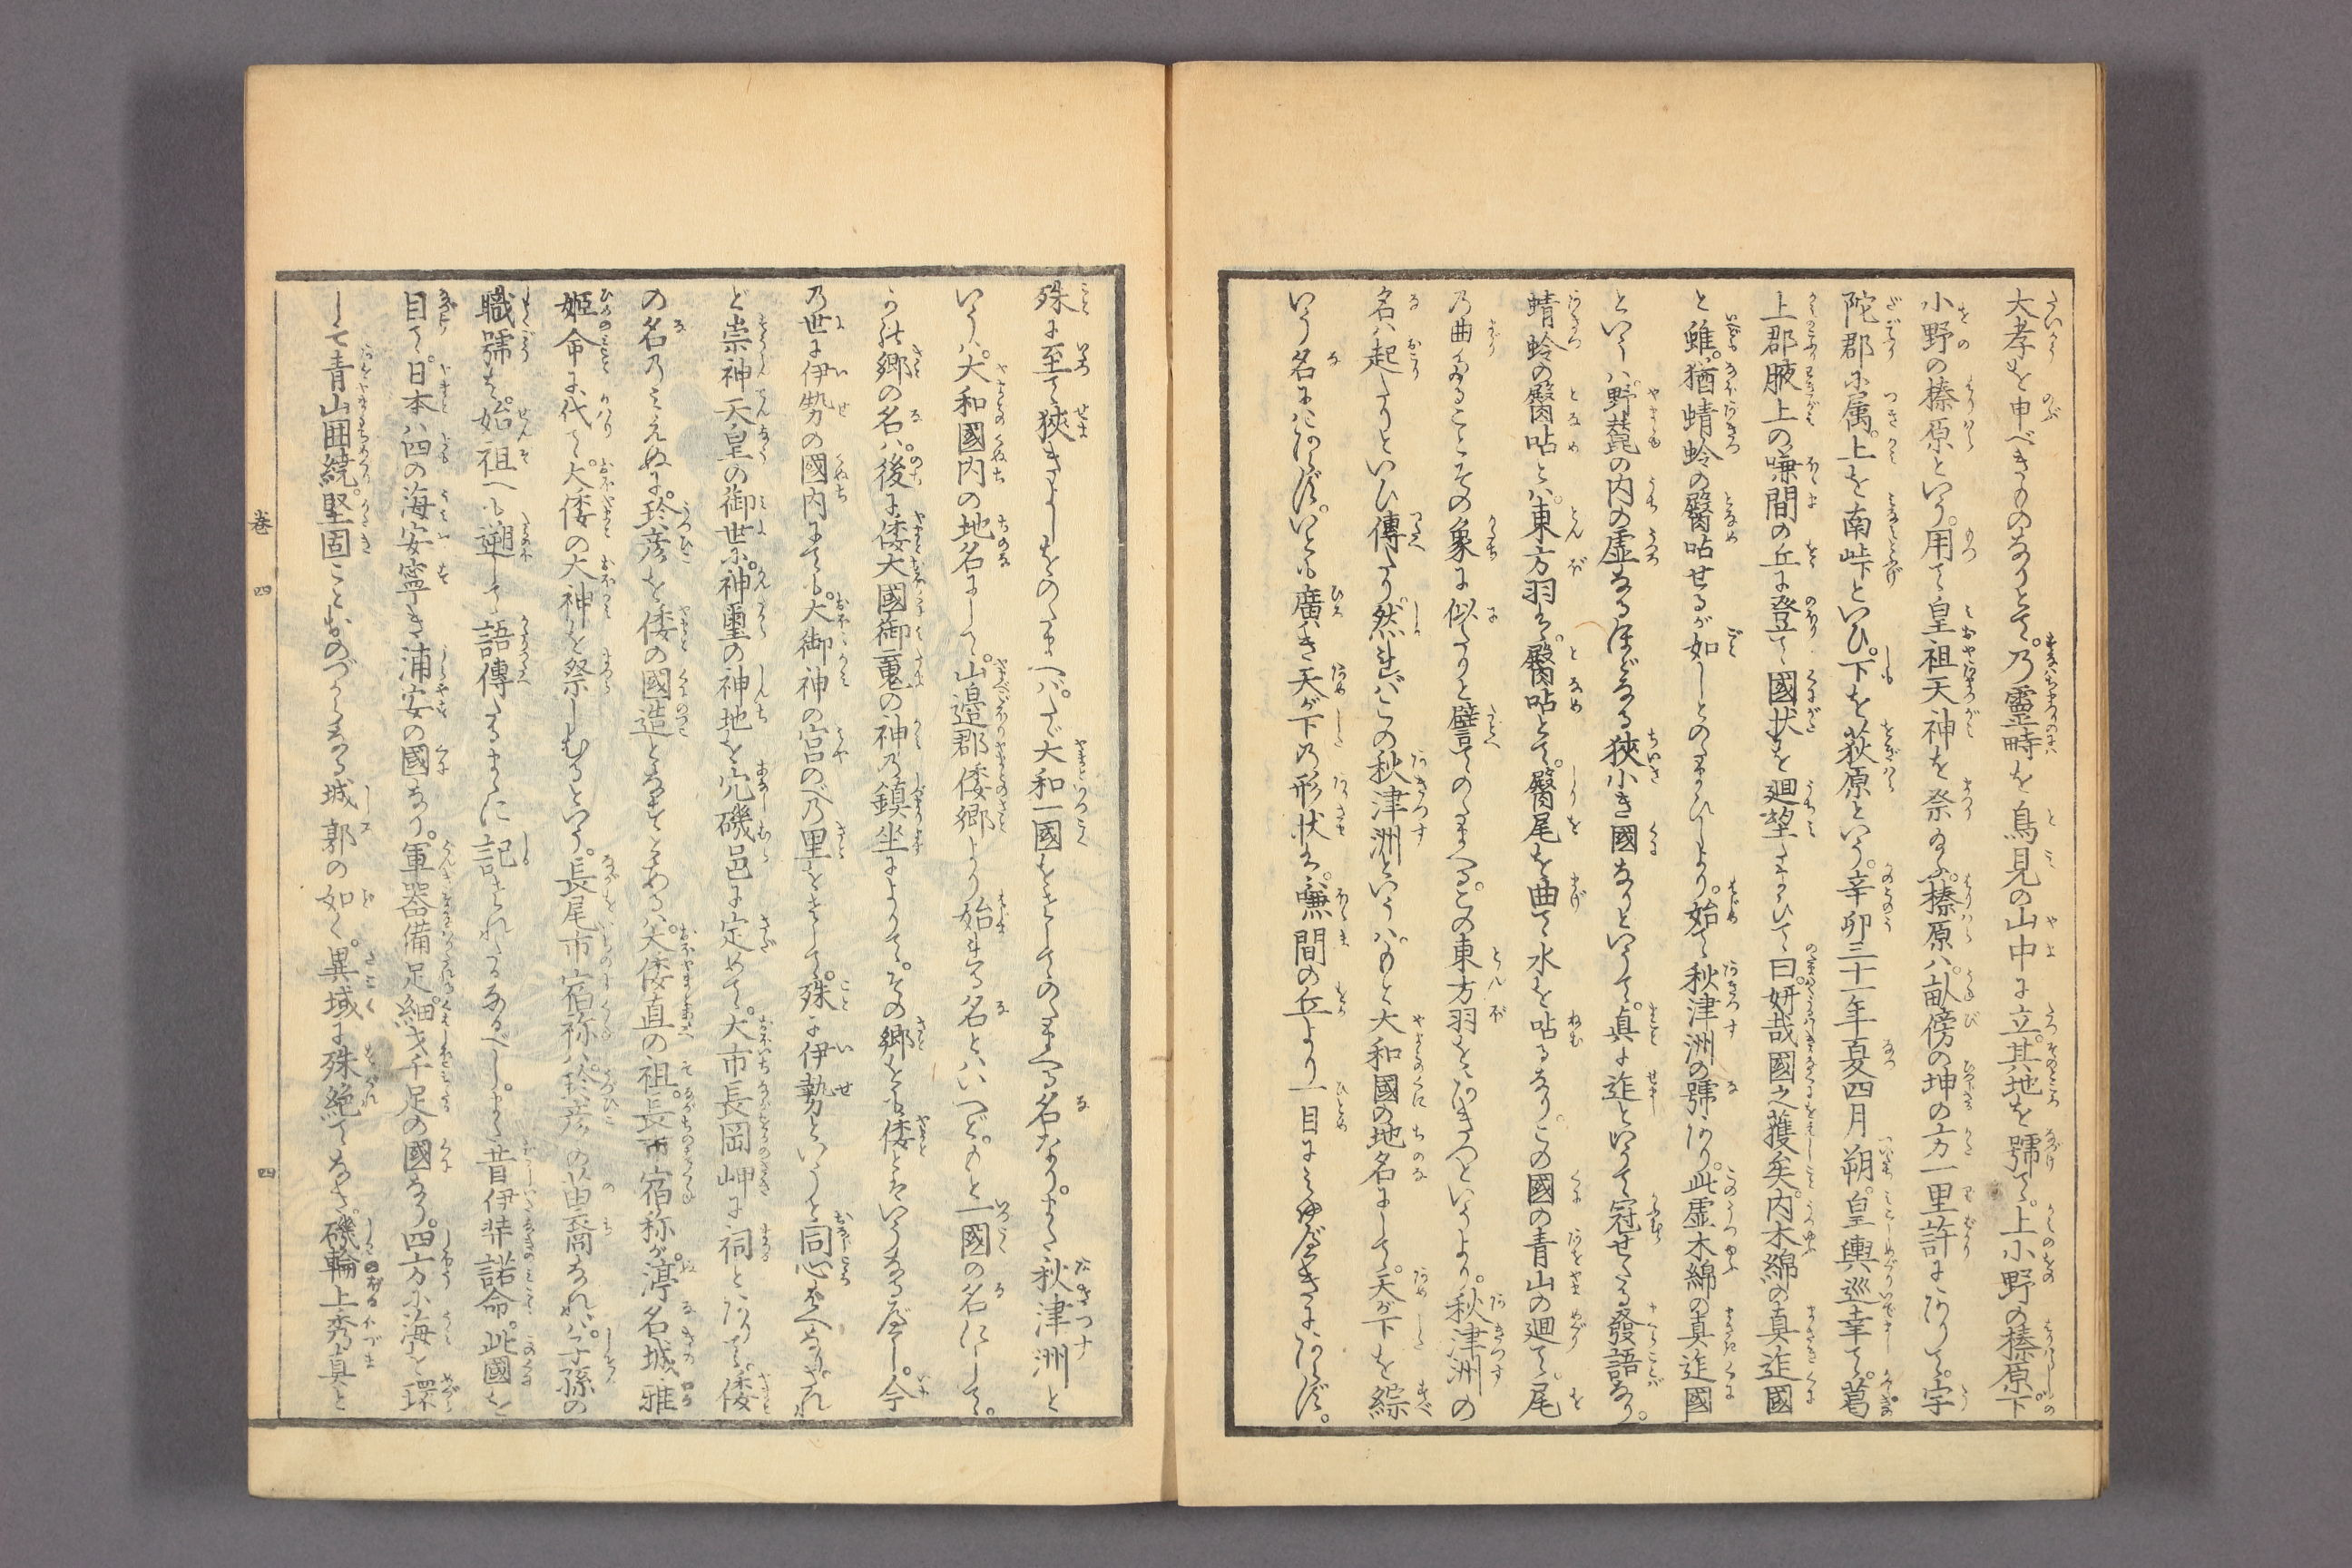 大孝を申べきものなりとて。乃霊畤を鳥見の山中に立。其地を號て。上小野の榛原。下
小野の榛原といふ。用て皇祖天神を祭給ふ。榛原ハ畝傍の坤の方一里許にありて。宇
陀郡に属。上を南峠といひ。下を荻原といふ。辛卯三十一年夏四月朔。皇輿巡幸て。葛
上郡腋上の嗛間の丘に登て。國状を廻望たまひて。曰。妍哉國之獲矣。内木綿の真迮國
と雖。猶蜻蛉の臀呫せるが如しとのたまひしより。始て秋津洲の號あり。此虚木綿の真迮國
といふハ。野蠶の内の虚なるほどなる狹小き國なりといふて。真に迮といふて冠せたる發語なり。
蜻蛉の臀呫とハ。東方羽が。臀呫とて。臀尾を曲て水を呫るなり。この國の青山の廻て。尾
乃曲名は起たりといひ傳たり
名ハ起たりといひ傳たり。然ればこの秋津洲といふハ。もと大和國の地名にして。天が下を綜
いふ名にはあらず。いとも廣き天が下乃形状を。嗛間の丘より一目にみゆべきにあらず。
殊に至て狹きよしをのたまへバ。たゞ大和一國をさしてのたまへる名なり。また秋津洲と
いふハ。大和國内の地名にして。山邉郡倭郷より始まる名とハいへど。もと一國の名にして。
その郷の名ハ。後に倭大國御魂の神乃鎮坐によりて。その郷をも倭とはいふなるべし。今
乃世に伊勢の國内にても。大御神の宮のべ乃里をさして。殊に伊勢といふと同心ばへなり。され
ど崇神天皇の御世に。神璽の神地を穴磯邑に定めて。大市長岡岬に祠とありて。倭
の名乃みえぬに。珍彦を倭の國造となすとあるハ。大倭直の祖。長市宿祢が。渟名城雅
姫命に代て。大倭の大神を祭しむるといふ。長尾市宿祢ハ。珍彦の苗裔なれバ。子孫の
職號を。始祖へも遡して語傳たるまゝに記されたるなるべし。また昔伊弉諾命。此國を
目て。日本ハ四の海安寧き浦安の國なり。軍器備足。細戈千足の國なり。四方に海を環
して青山囲繞。堅固ことおのづからなる城郭の如く。異域に殊絶てあるさま。磯輪上秀真と
巻四
四